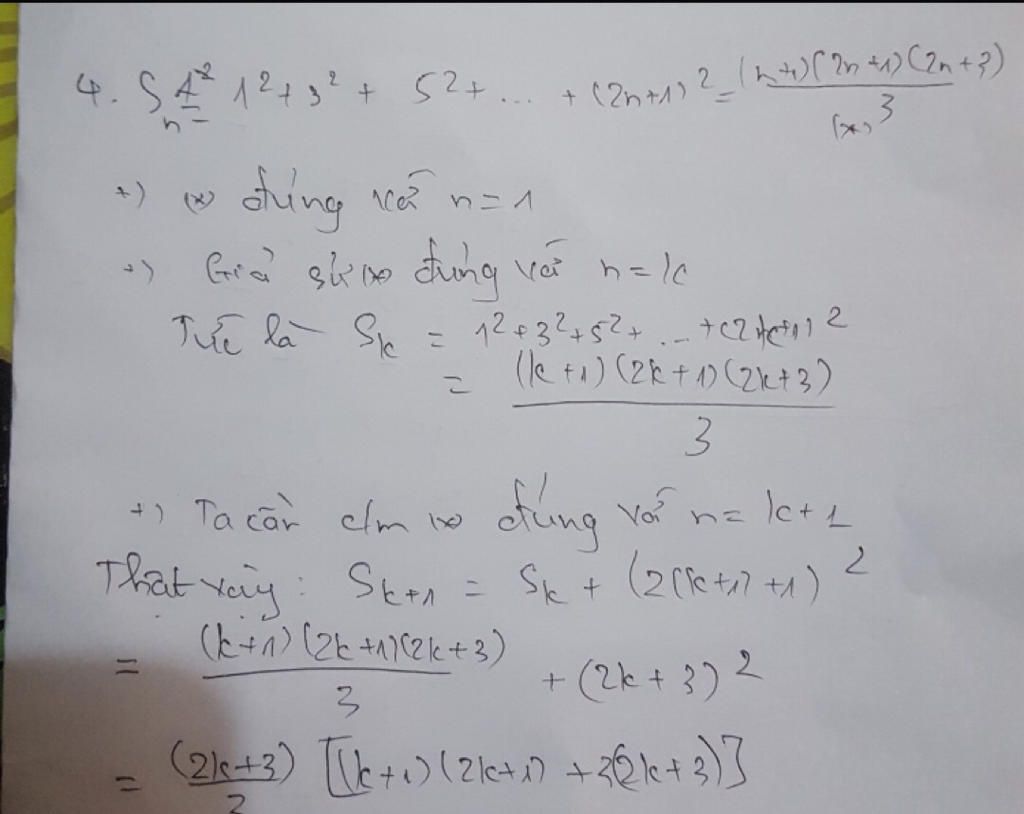 4. S_n = 1² + 3² + 5² + ... + (2n+1)² = (n+1)(2n+1)(2n+3)/3 (*)
+) (*) đúng với n = 1
+) Giả sử (*) đúng với n = k
Tức là S_k = 1² + 3² + 5² + ... + (2k+1)²
= (k+1)(2k+1)(2k+3)/3
+) Ta cần c/m (*) đúng với n = k+1
Thật vậy: S_{k+1} = S_k + (2(k+1)+1)²
= (k+1)(2k+1)(2k+3)/3 + (2k+3)²
= (2k+3)/3 [(k+1)(2k+1) + 3(2k+3)]